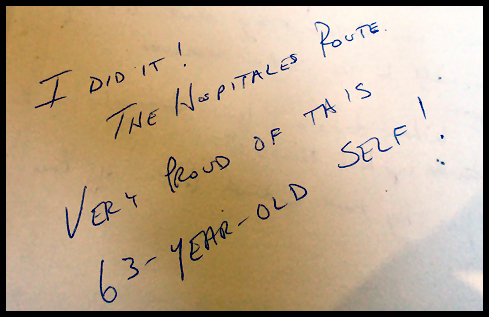 I DID IT!
THE HOSPITALES ROUTE.
VERY PROUD OF THIS
63-YEAR-OLD SELF!